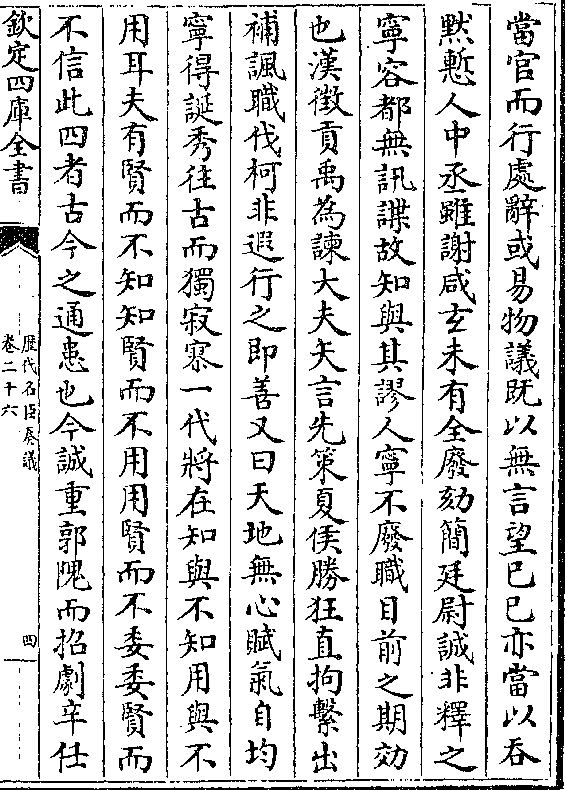 當官而行處辭或易物議既以無言望己己亦當以吞
黙慙人中丞雖謝咸𤣥未有全廢劾簡廷尉誠非釋之
寧容都無訊諜故知與其謬人寧不廢職目前之期効
也漢徴貢禹為諫大夫矢言先策夏侯勝狂直拘繫出
補諷職伐柯非遐行之即善又曰天地無心賦氣自均
寧得誕秀往古而獨寂寥一代將在知與不知用與不
用耳夫有賢而不知知賢而不用用賢而不委委賢而
不信此四者古今之通患也今誠重郭隗而招劇辛仕
欽定四庫全書
歴代名臣奏議
卷二十六
四